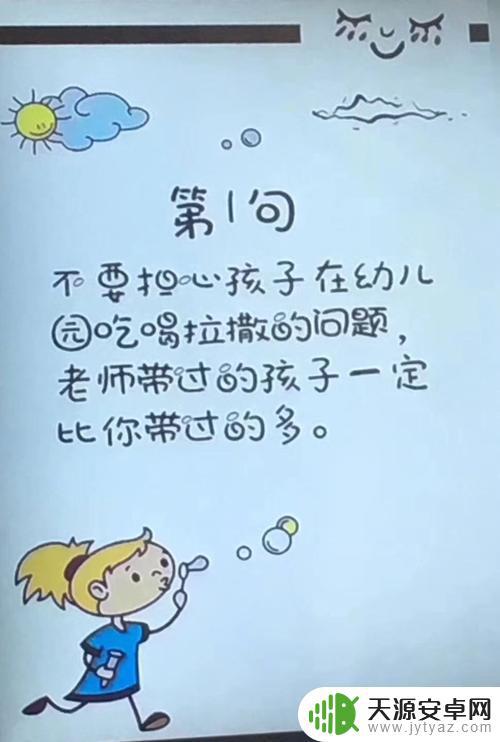 第1句
不要担心孩子在幼儿
园吃喝拉撒的问题，
老师带过的孩子一定
比你带过的多。
天源安卓网
www.jytyaz.com